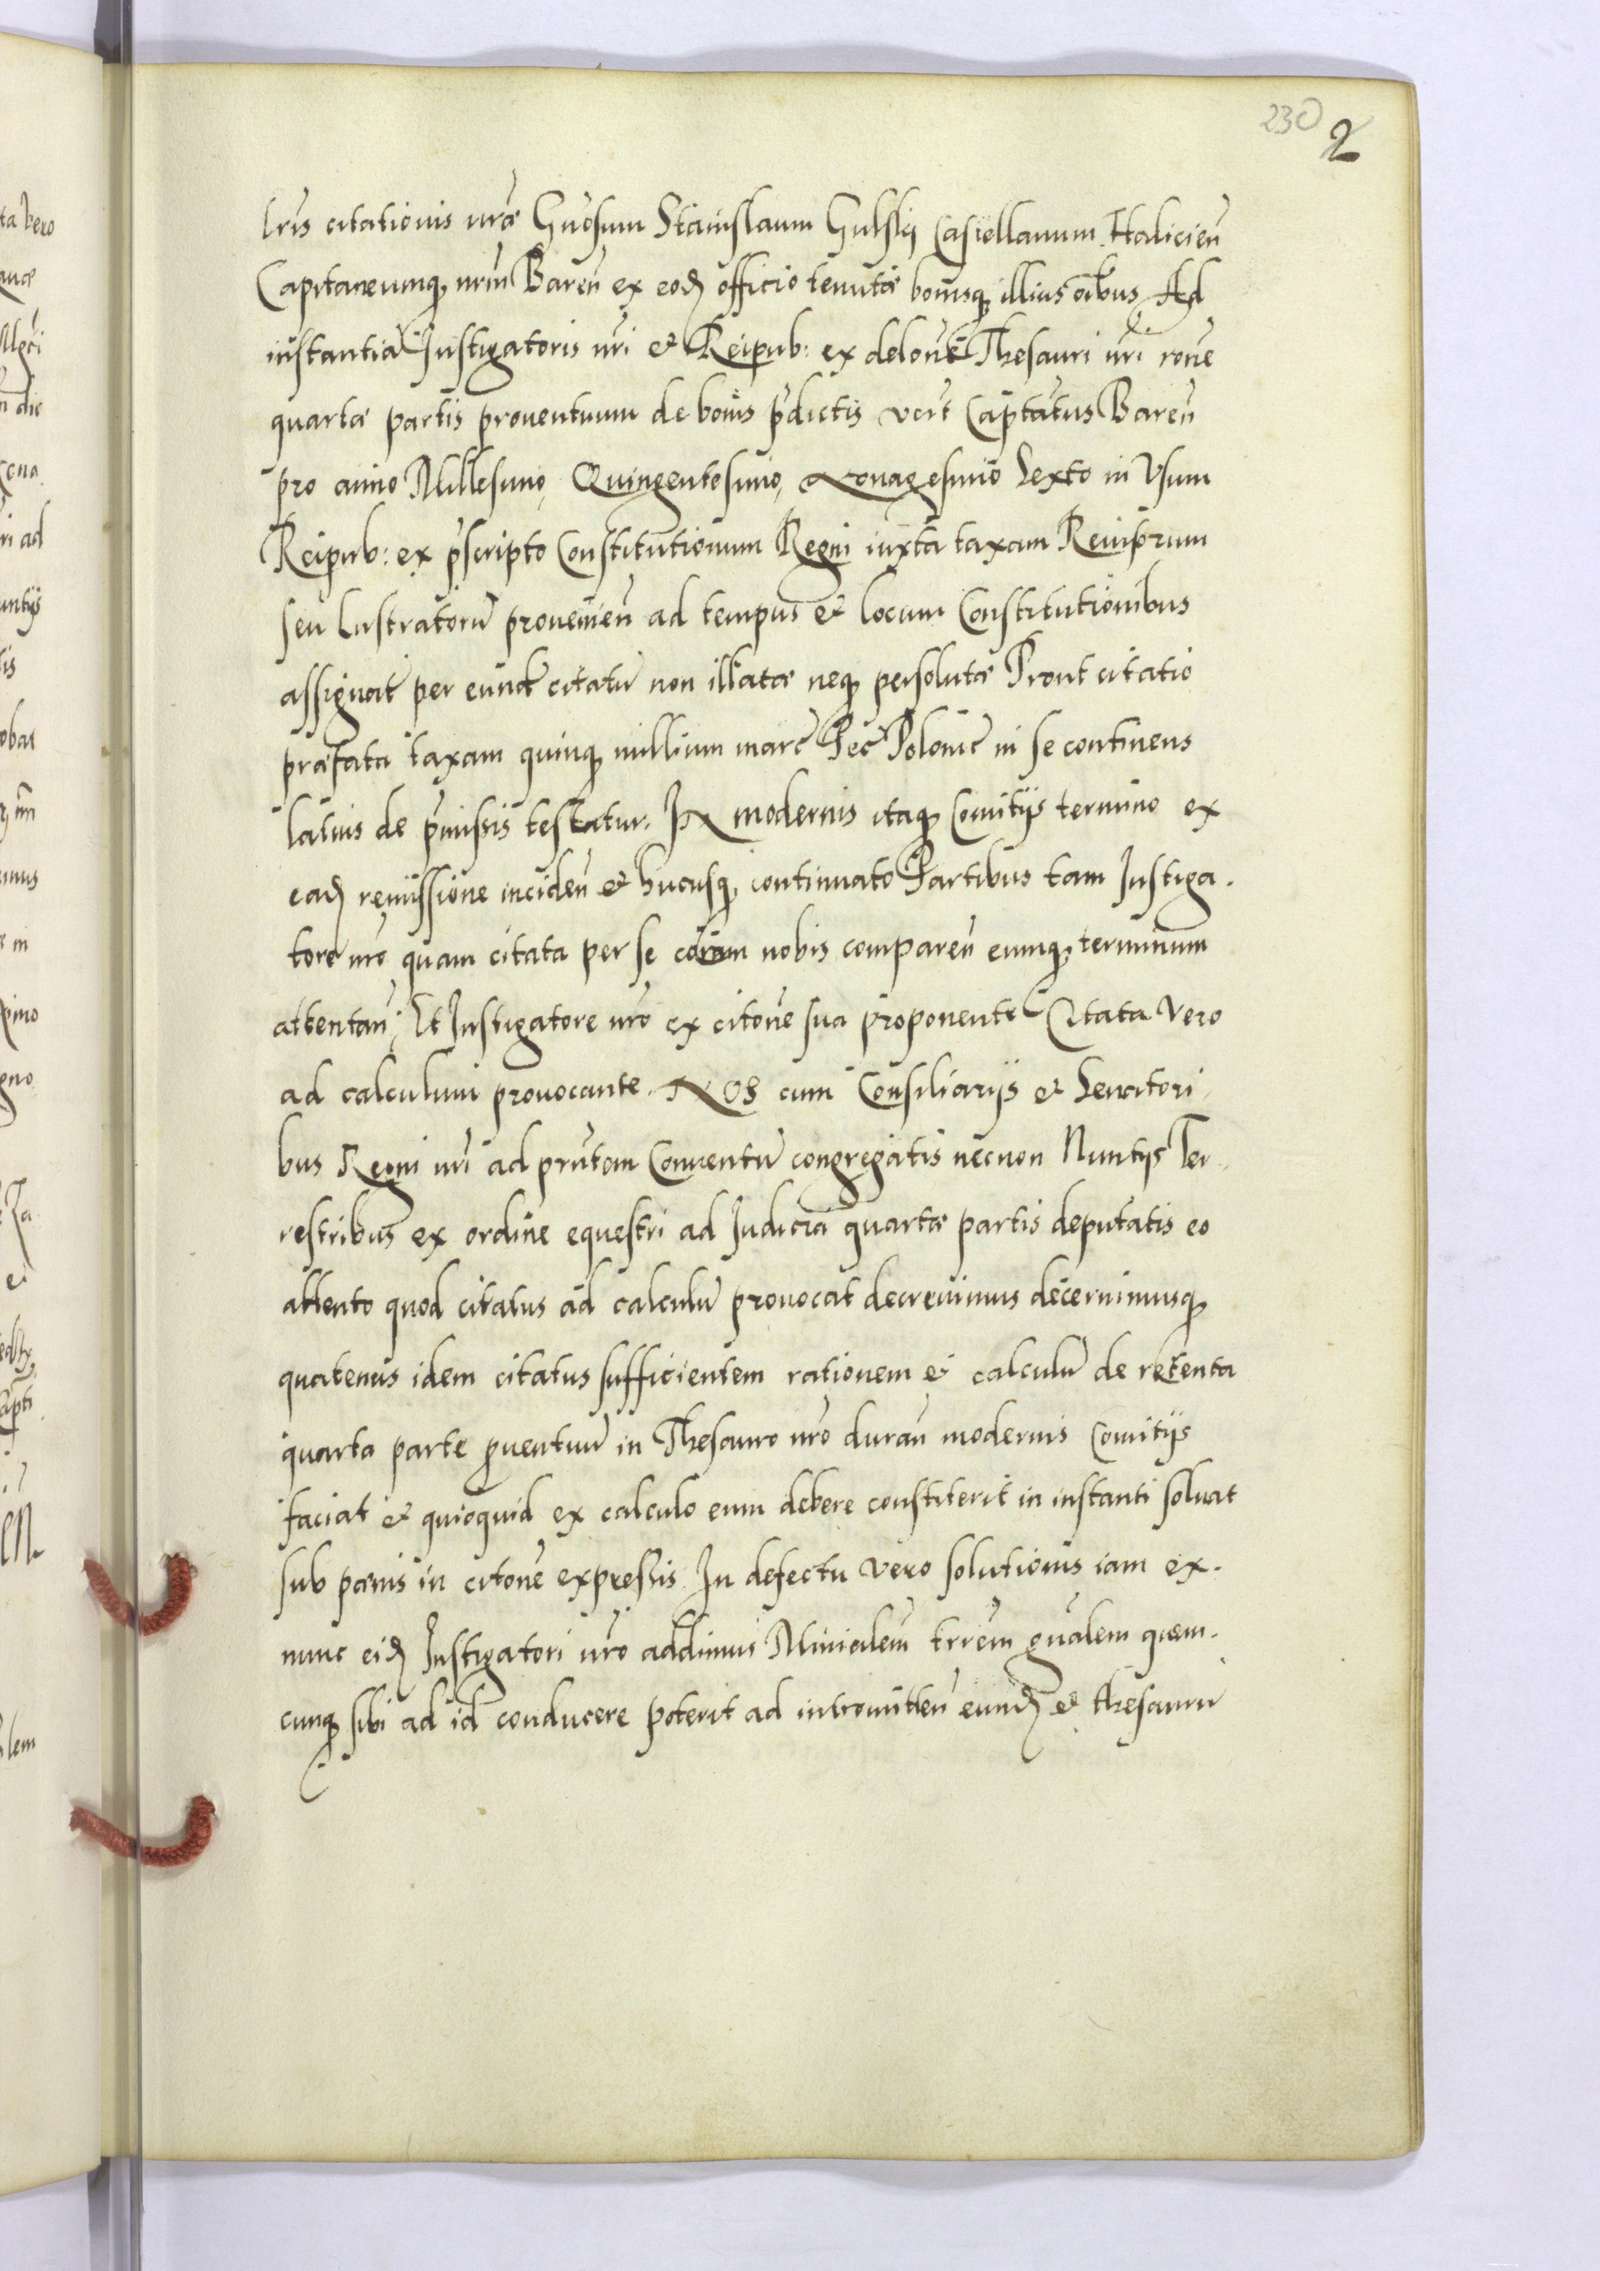 230 2
lris citationis nrae Gnosum Stanislaum Gulskij Castellanum Halicien̄
Capitaneumq; nrm̄ Baren̄ ex eod̄ officio tenutae bonisq; illius oībus Ad
instantia Instigatoris nri et Reipub: ex delone Thesauri nri rone
quartae partis prouentuum de bonis p̄dictis vert Captatus Baren̄
pro anno Millesimo Quingentesimo Nonagesimo Sexto in Vsum
Reipub: ex p̄scripto Constitutionum Regni iuxta taxam Reuisorum
seu Lustratorū prouenien̄ ad tempus et locum Constitutionibus
assignat per eund citatū non illatae neq; persolutae Prout citatio
praefata taxam quinq; millium marc Pec Polonic in se continens
latius de p̄missis testatur. IN modernis itaq; Comitijs termino ex
ead̄ remissione inciden̄ et hucusq; continuato Partibus tam Instiga-
tore nro quam citata per se coram nobis comparen̄ eumq; terminum
attentan̄; Et Instigatore nro ex citone sua proponente Citata Vero
ad calculum prouocante. NOS cum Consiliarijs et Senatori-
bus Regni nri ad prntem Conuentū congregatis necnon Nuntijs Ter-
restribus ex ordine equestri ad Iudicia quartae partis deputatis eo
attento quod citatus ad calculū prouocat decreuimus decernimusq;
quatenus idem citatus sufficientem rationem et calculū de retenta
quarta parte puentuū in Thesauro nro duran̄ modernis Comitijs
faciat et quicquid ex calculo eum debere constiterit in instanti soluat
sub paenis in citone expressis. In defectu Vero solutionis iam ex-
nunc eid̄ Instigatori nro addimus Mininlem̄ trrem gn̄alem quem-
cunq; sibi ad id conducere poterit ad intromitten̄ eund̄ et thesaurū